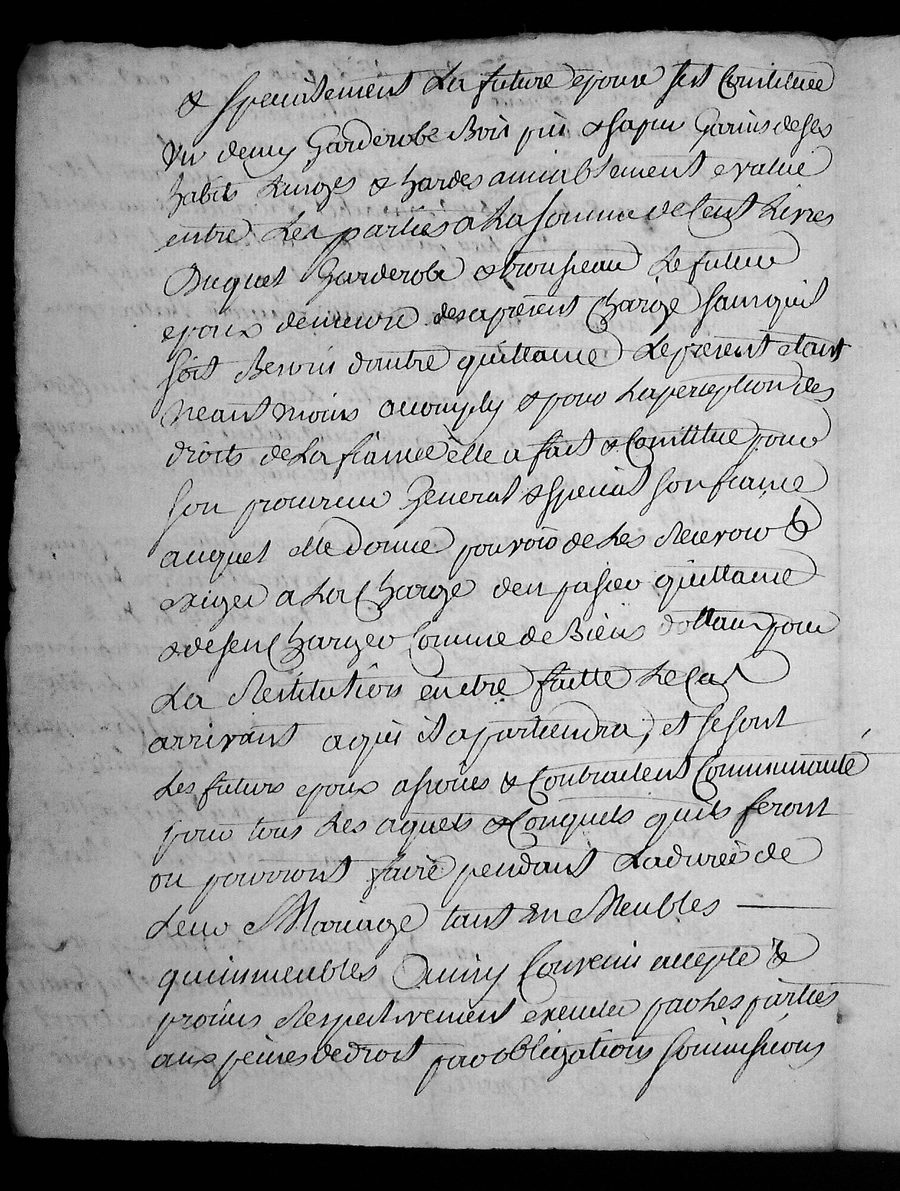 & specialement La future epouse sest Constituée
un demy Garderobe Bois pin & sapin Garnis de ses
habits Linges & hardes amiablement evalué
entre Les parties a La somme de Cent Livres
Duquel Garderobe & trousseau Le futur
epoux demeure des apresent Chargé sans quil
soit Besoin dautre quittance Le present étant
neant moins accomply & pour La perception des
droits de La fiancée elle a fait & Constitué pour
son procureur General & special son fiancé
auquel elle donne pouvoir de Les Recevoir &
exiger a La Charge den passer quittance
& de sen Charger Comme de Biens dottaux pour
La Restitution en etre faitte Le Cas
arrivant a qui il apartiendra, et se sont
Les futurs epoux assoúes & Contractent Communauté
pour tous Les aquets & Conquets quils feront
ou pourront faire pendant La durée de
Leur Mariage tant En Meubles
quimmeubles Ainsy Convenu accepté &
promis Respectivement executer par Les parties
aux peines de droit par obligations soumissions